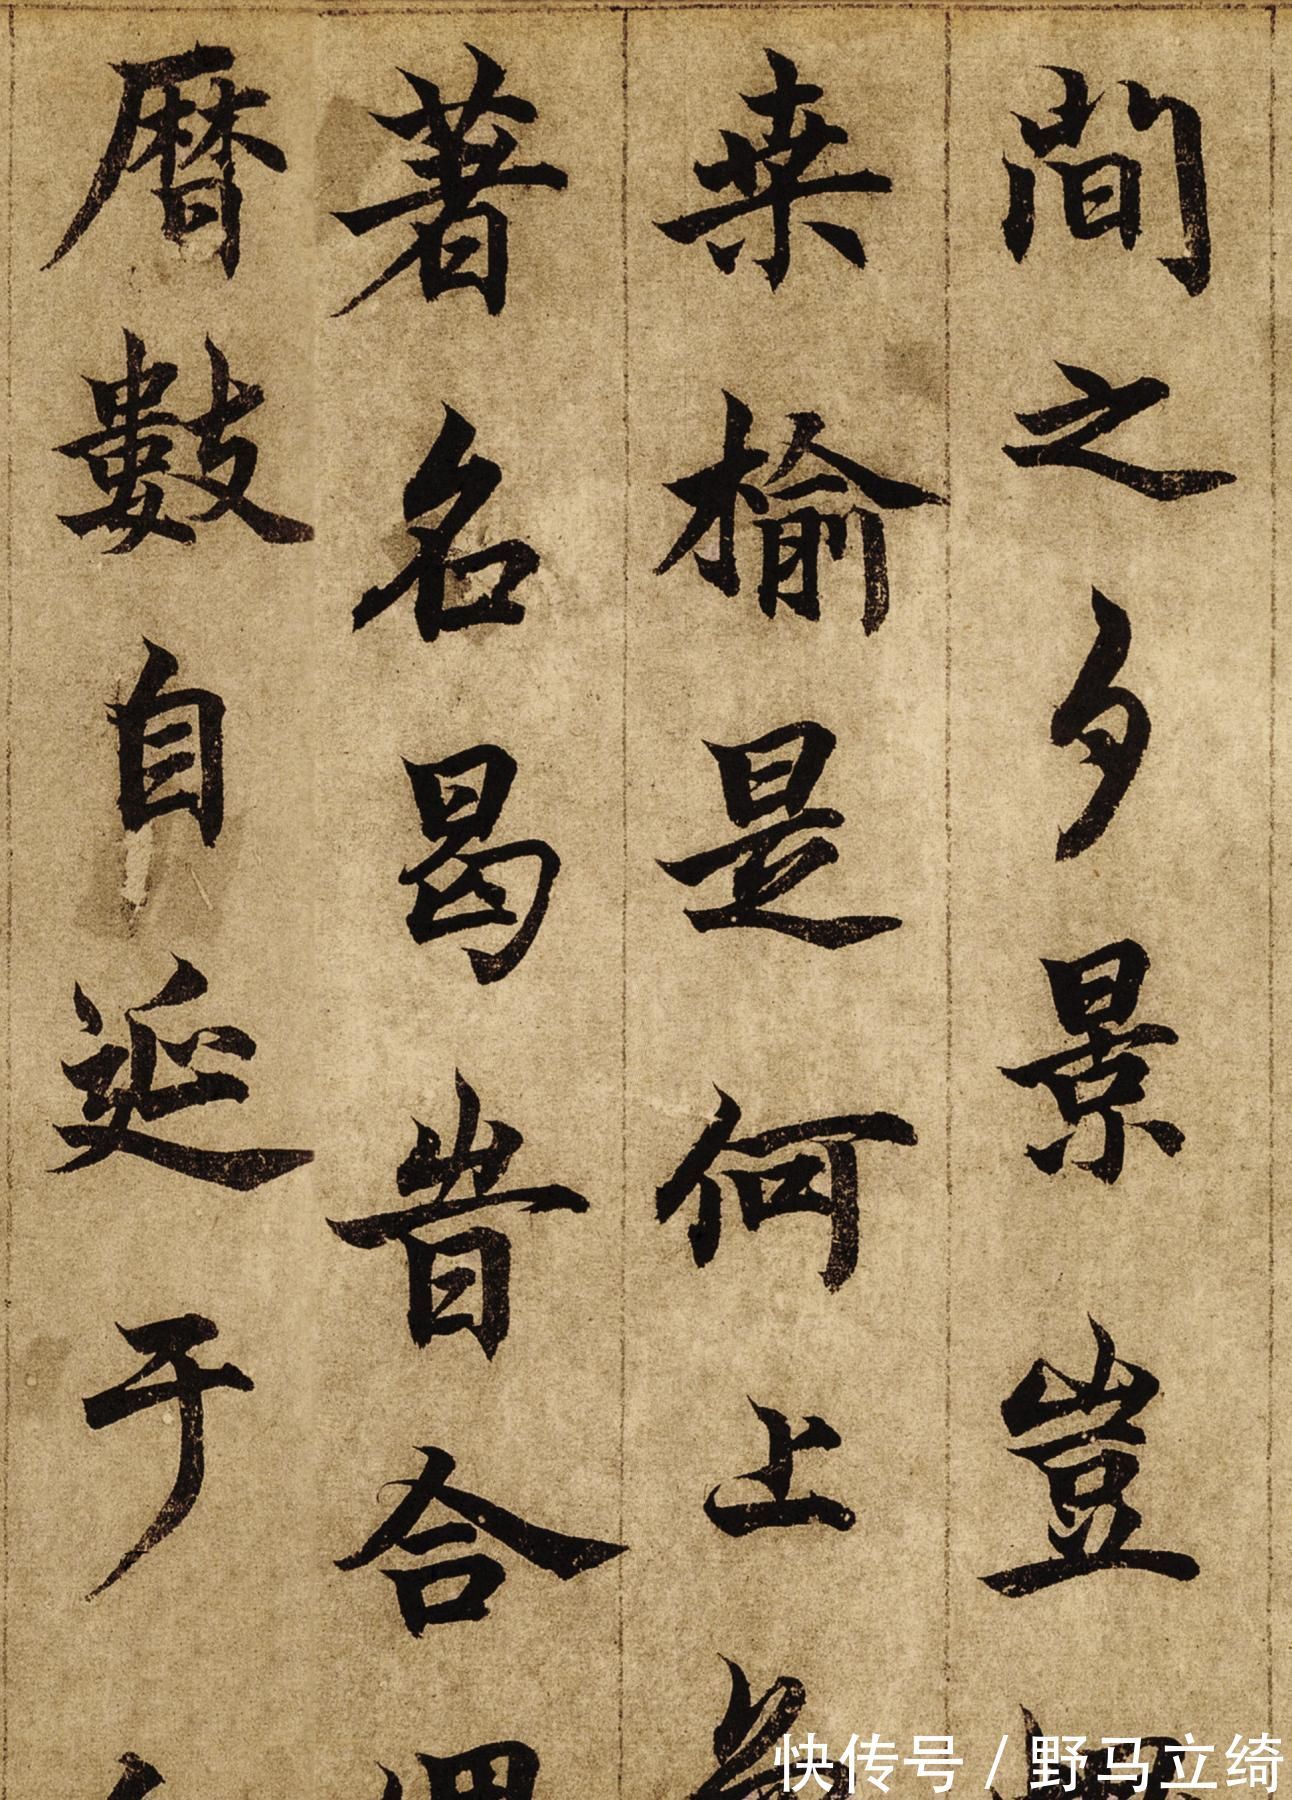 間之夕景豈
桒榆是何上
著名曷昔合
曆數自延于
快传号 / 野马立绮